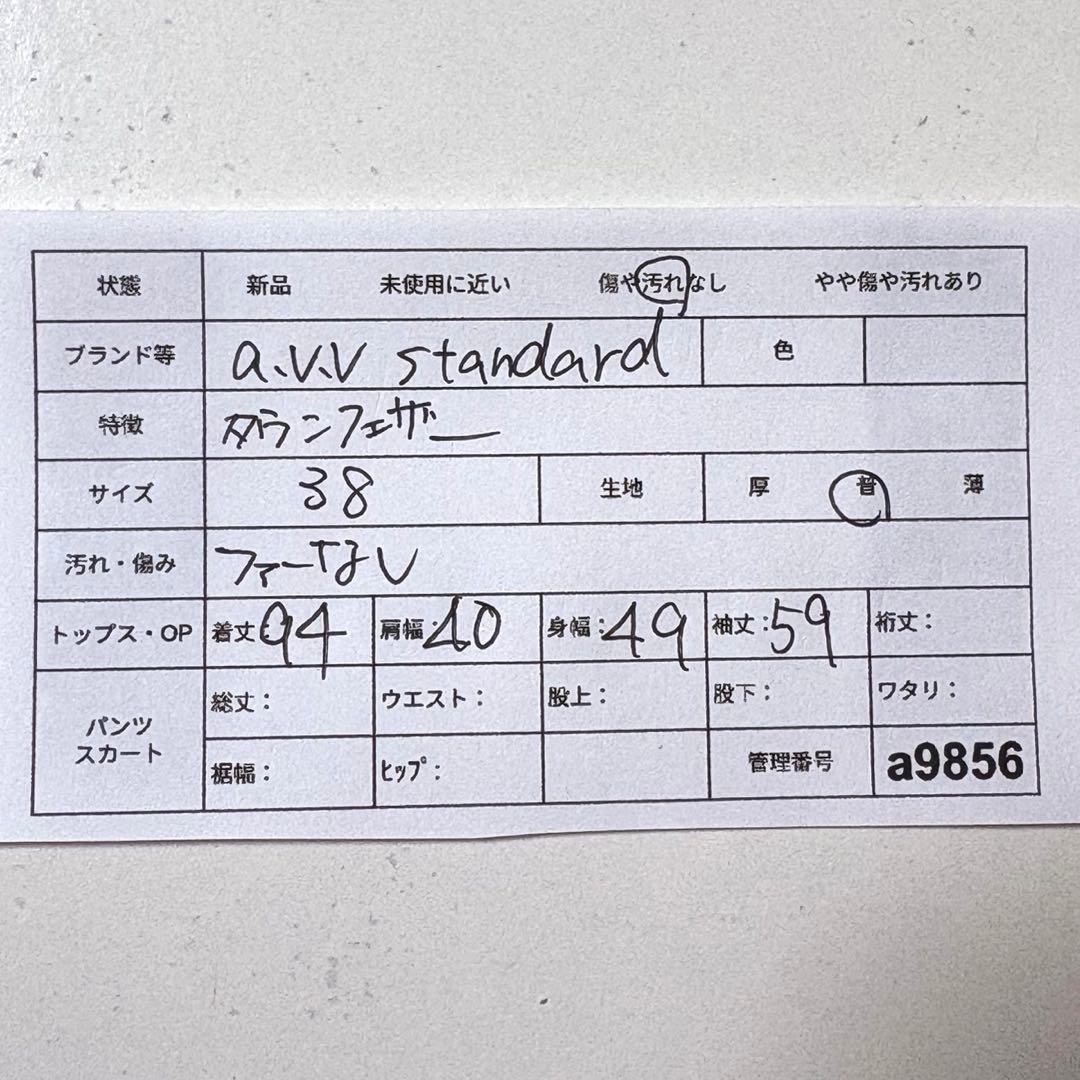 状態 新品 未使用に近い 傷や汚れなし やや傷や汚れあり
ブランド等 a.v.v standard 色
特徴 ダウンフェザー
サイズ 38 生地 厚 普 薄
汚れ・傷み ファーなし
トップス・OP 着丈 94 肩幅: 40 身幅: 49 袖丈: 59 裄丈:
パンツ スカート 総丈: ウエスト: 股上: 股下: ワタリ:
裾幅: ヒップ: 管理番号 a9856